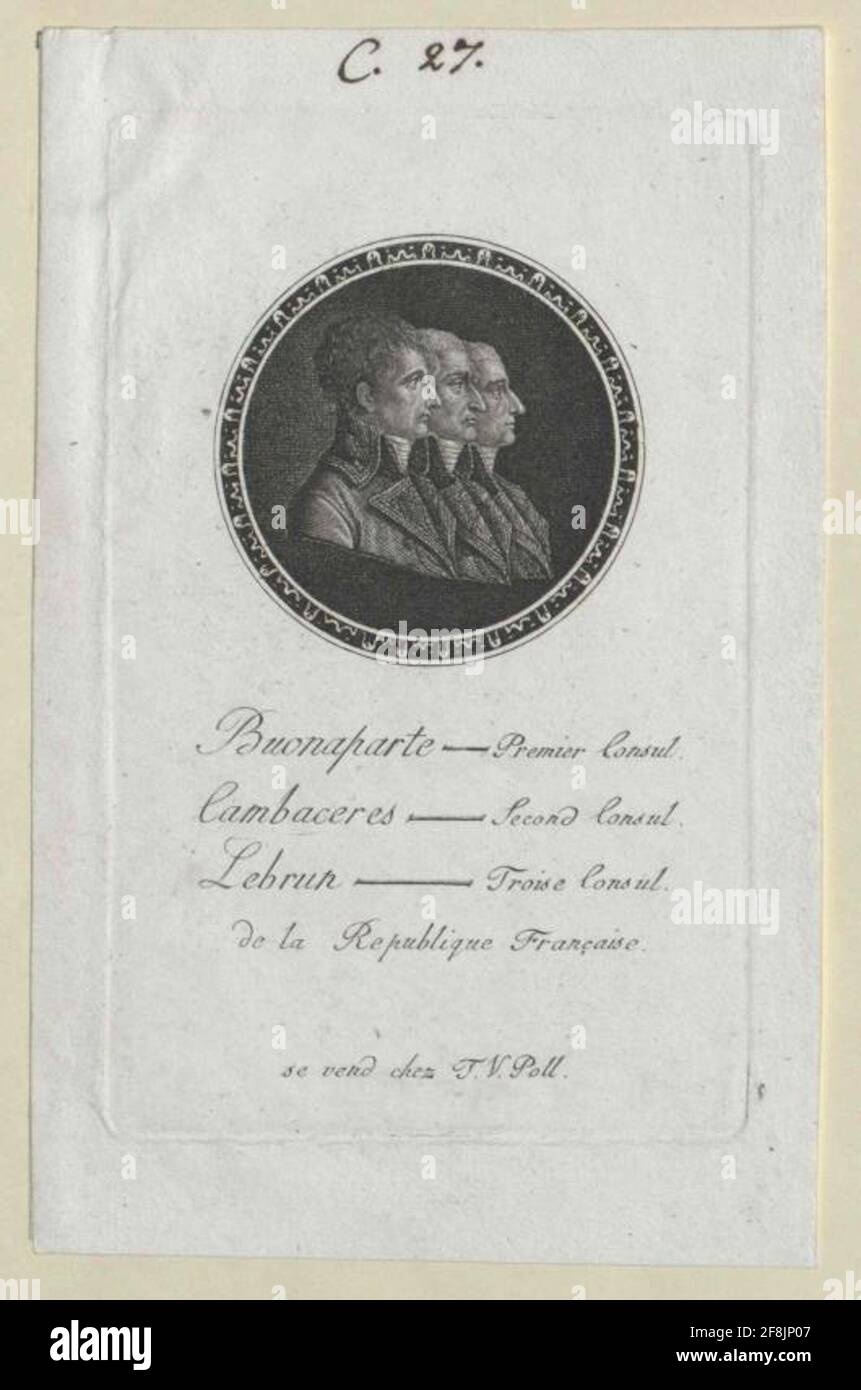 C. 27.
Buonaparte — Premier Consul.
Cambaceres — Second Consul.
Lebrun — Troise Consul.
de la Republique Française.
se vend chez T. V. Poll.
alamy
Image ID: 2F8JP07
www.alamy.com